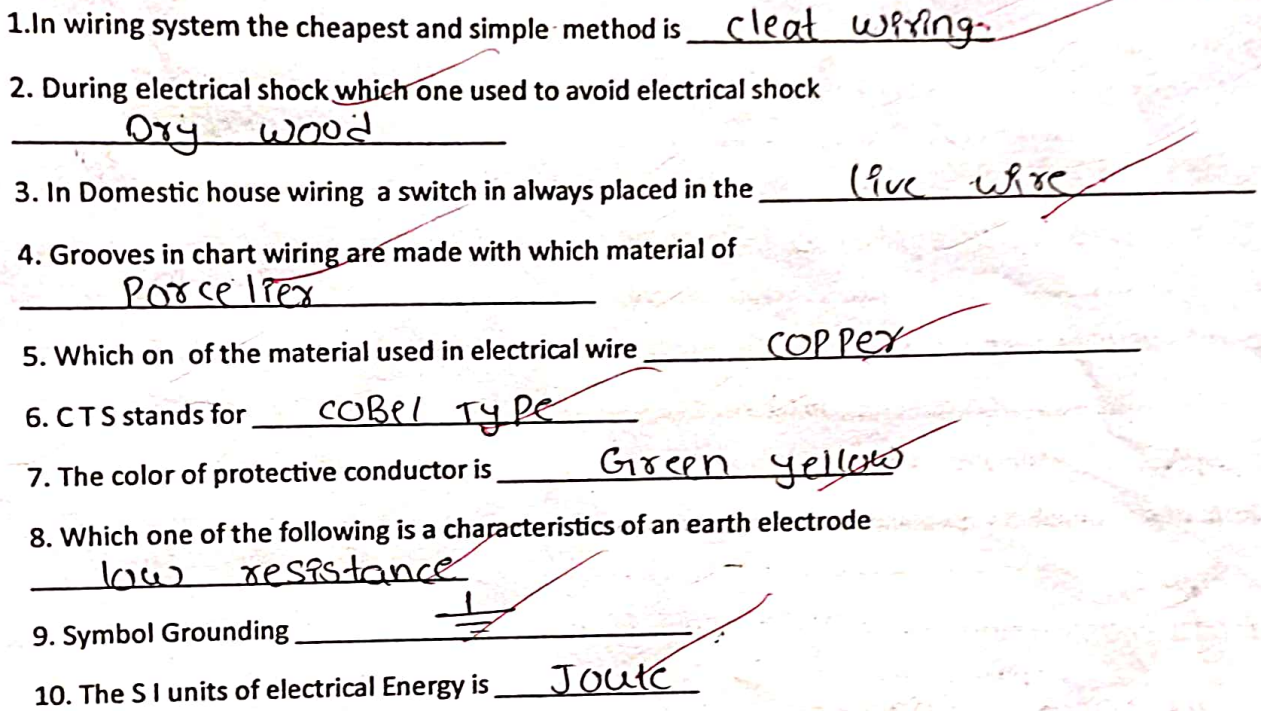 1.In wiring system the cheapest and simple method is cleat wiring.
2. During electrical shock which one used to avoid electrical shock
Dry wood
3. In Domestic house wiring a switch in always placed in the live wire
4. Grooves in chart wiring are made with which material of
Porcelier
5. Which on of the material used in electrical wire copper
6. C T S stands for coBel Type
7. The color of protective conductor is Green yellow
8. Which one of the following is a characteristics of an earth electrode
low resistance
9. Symbol Grounding
10. The S I units of electrical Energy is Joule